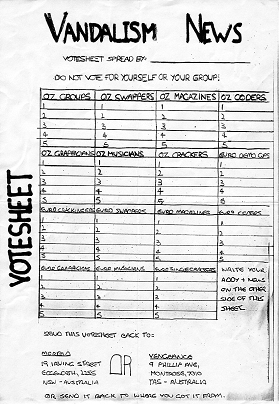 VANDALISM NEWS
VOTESHEET SPREAD BY:
DO NOT VOTE FOR YOURSELF OR YOUR GROUP!
OZ GROUPS OZ SWAPPERS OZ MAGAZINES OZ CODERS
1 1 1 1
2 2 2 2
3 3 3 3
4 4 4 4
5 5 5 5
OZ GRAPHICIANS OZ MUSICIANS OZ CRACKERS EURO DEMO GPS
1 1 1 1
2 2 2 2
3 3 3 3
4 4 4 4
5 5 5 5
EURO SWAPPERS EURO MAGAZINES EURO CODERS
1 1 1 1
2 2 2 2
3 3 3 3
4 4 4 4
5 5 5 5
EURO GRAPHICIANS EURO MUSICIANS EURO WRITE YOUR
1 1 1 ADDY + NEWS
2 2 2 ON THE OTHER
3 3 3 SIDE OF THIS
4 4 4 SHEET
5 5 5
VOTESHEET
SEND THIS VOTESHEET BACK TO:
OR
19 STREET
2225
NSW - AUSTRALIA
VENGEANCE
9 PHILLIP AVE,
MONTROSE, 7010
TAS - AUSTRALIA
OR SEND IT BACK TO WHERE YOU GOT IT FROM.